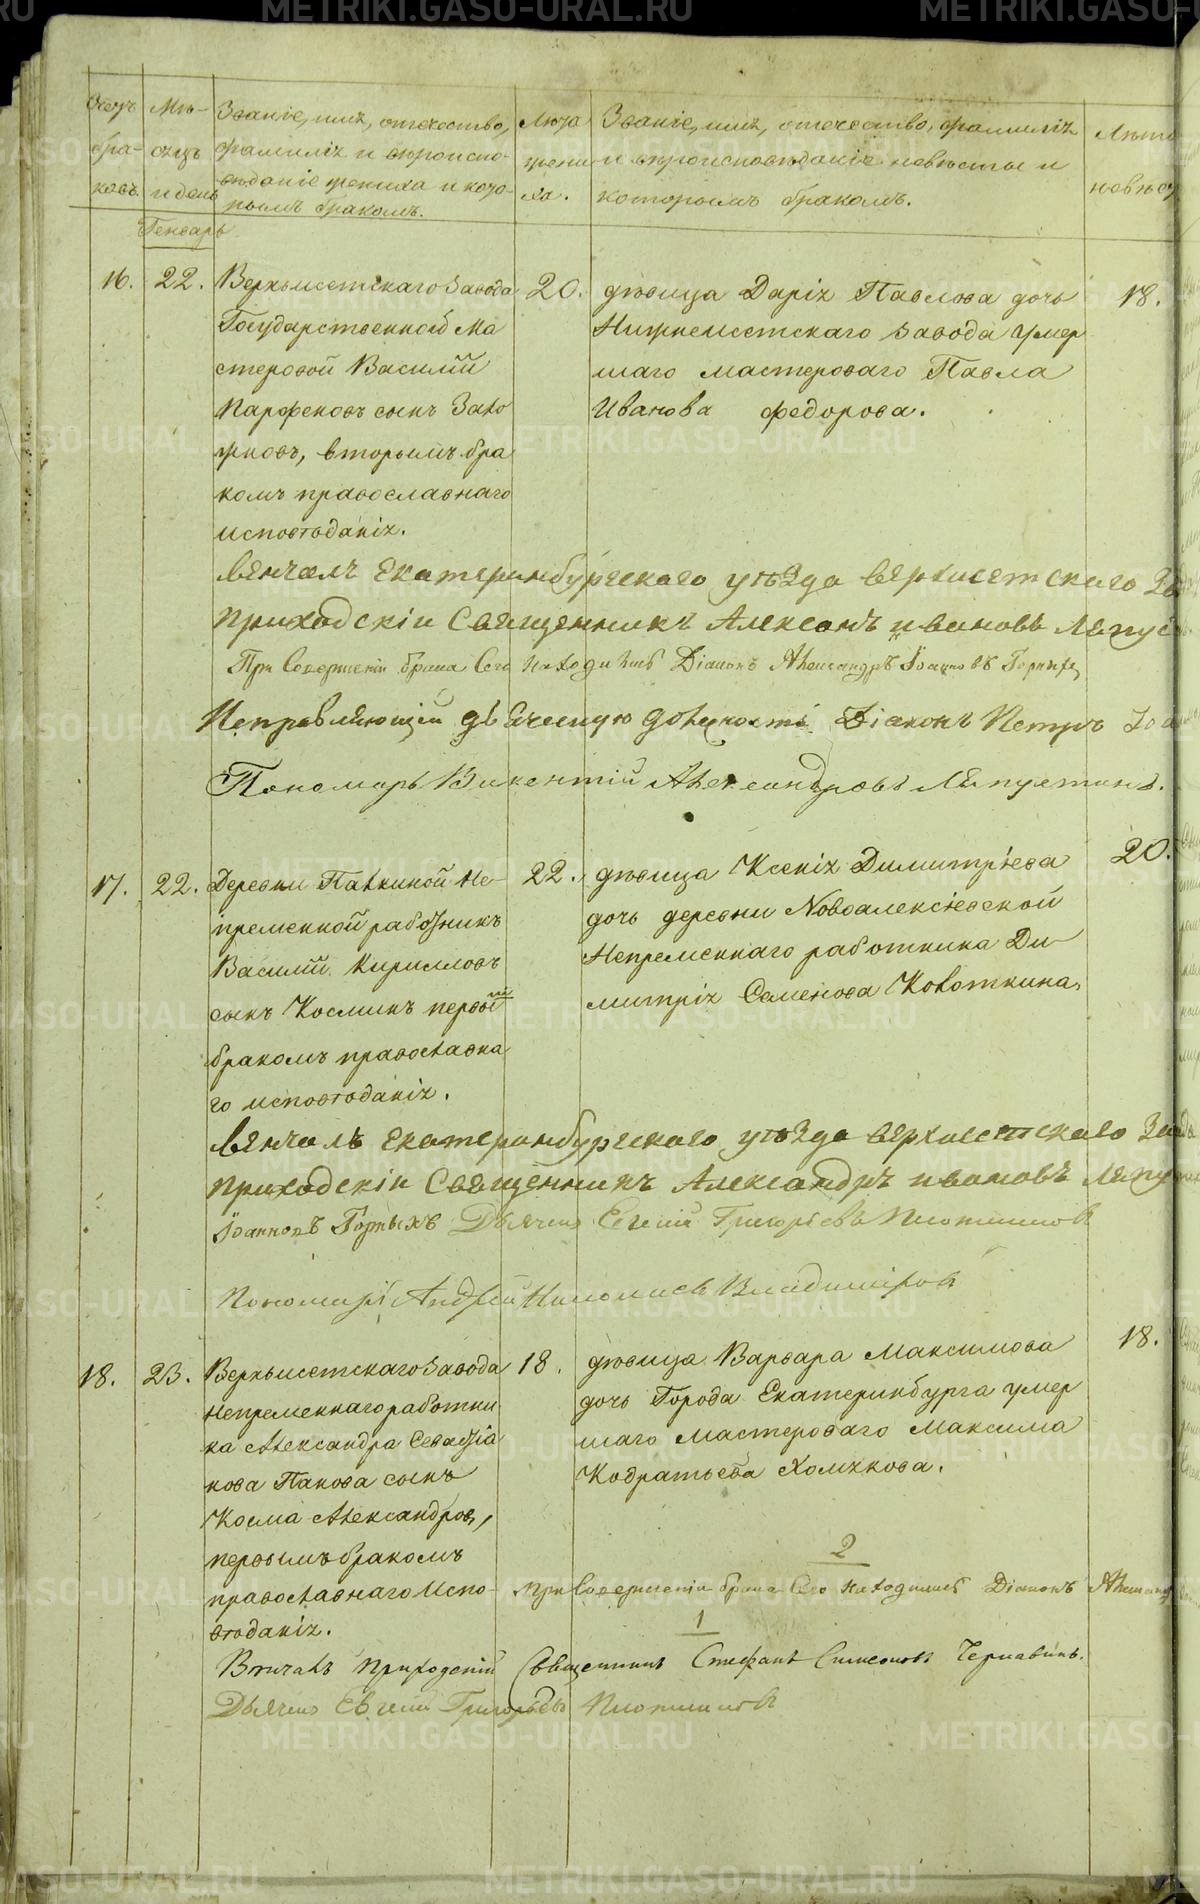 METRIKI.GASO-URAL.RU
Счетъ бра- ковъ.
Мѣ- сяцъ и день
Званіе, имя, отечество,
фамилія и вѣроиспо-
вѣданіе жениха и кото-
рымъ бракомъ.
Лѣта жени- ха.
Званіе, имя, отечество, фамилія
и вѣроисповѣданіе невѣсты и
которымъ бракомъ.
Лѣта
невѣс
Генварь
16. 22.
Верхъисетскаго завода
Государственной ма
стеровой Василій
Парфеновъ сынъ
вторымъ бра
комъ православнаго
исповѣданія.
20.
дѣвица Дарія Павлова дочь
Нижнеисетскаго завода умер
шаго мастероваго Павла
Иванова Федорова.
18.
Венчалъ Екатеринбургскаго уѣзда Верхисетскаго За
приходскіи Священникъ Ивановъ Ляпус
При Совершеніи брака Сего находились Діаконъ Александръ Іоанновъ Горных
Исправляющій дьяческую должность Діаконъ Петръ Іоа
Пономарь Викентій Александровъ Ляпустинъ.
17. 22.
Деревни Палкиной Не-
пременной работникъ
Василій Кирилловъ
сынъ Косминъ первы
бракомъ православна
го исповѣданія.
22.
дѣвица Ксенія Димитріева
дочь деревни Новоалексіевской
Непременнаго работника Ди
митрія Семенова Колоткина,
20.
Венчалъ Екатеринбургскаго уѣзда Верхисетскаго За
приходскіи Священникъ Александръ Ивановъ Ляпу
Іоанновъ Горныхъ Дьячекъ Евгеній Григорьевъ Плотниковъ
Пономарь Андрей Николаевъ Владиміровъ
18. 23.
Верхъисетскаго завода
Непременнаго работни
ка Александра Севастіа
нова Панова сынъ
Косма Александровъ,
первымъ бракомъ
православнаго испо-
вѣданія.
18.
дѣвица Варвара Максимова
дочь Города Екатеринбурга умер
шаго мастероваго Максима
Кодратьева Хомякова.
18.
2
При Совершеніи брака Сего находились Діаконъ Александ
1
Вѣнчалъ Приходскій Священникъ Стефанъ Симеоновъ Чернавинъ.
Дьячекъ Евгеній Григорьевъ Плотниковъ